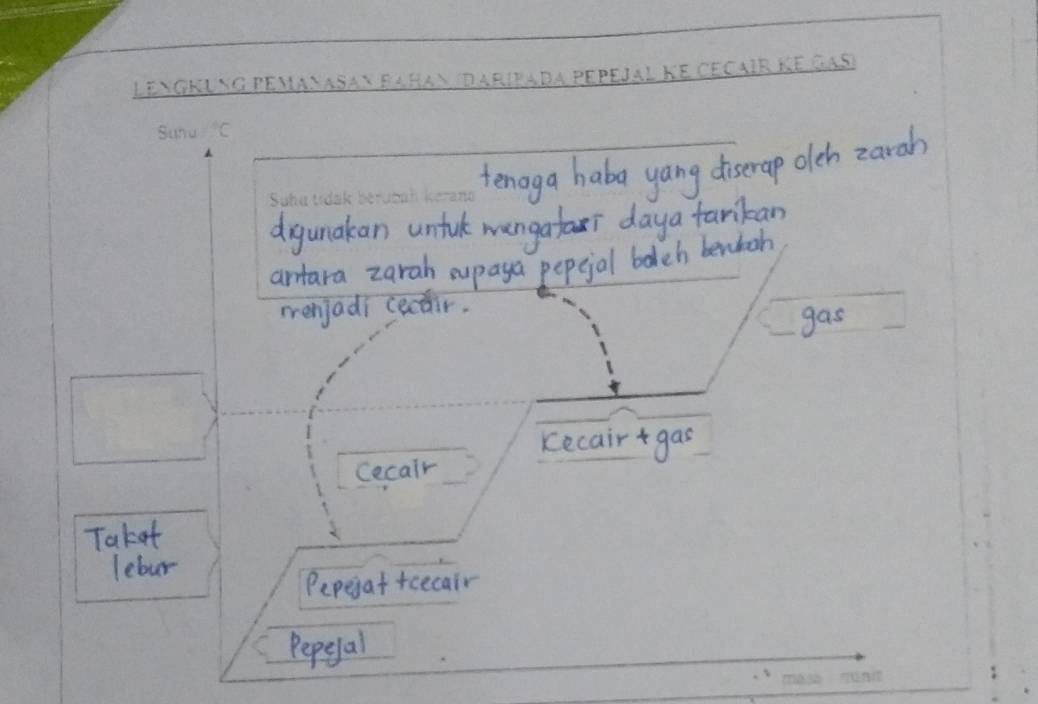 LENGKUNG PEMANASAN BAHAN (DARIPADA PEPEJAL KE CECAIR KE GAS)
Suhu / °C
Suhu tidak berubah kerana tenaga haba yang diserap oleh zarah
digunakan untuk mengatasi daya tarikan
antara zarah supaya pepejal boleh berubah
menjadi cecair.
gas
Kecair + gas
Cecair
Takat
lebur
Pepejat + cecair
Pepejal
masa / minit